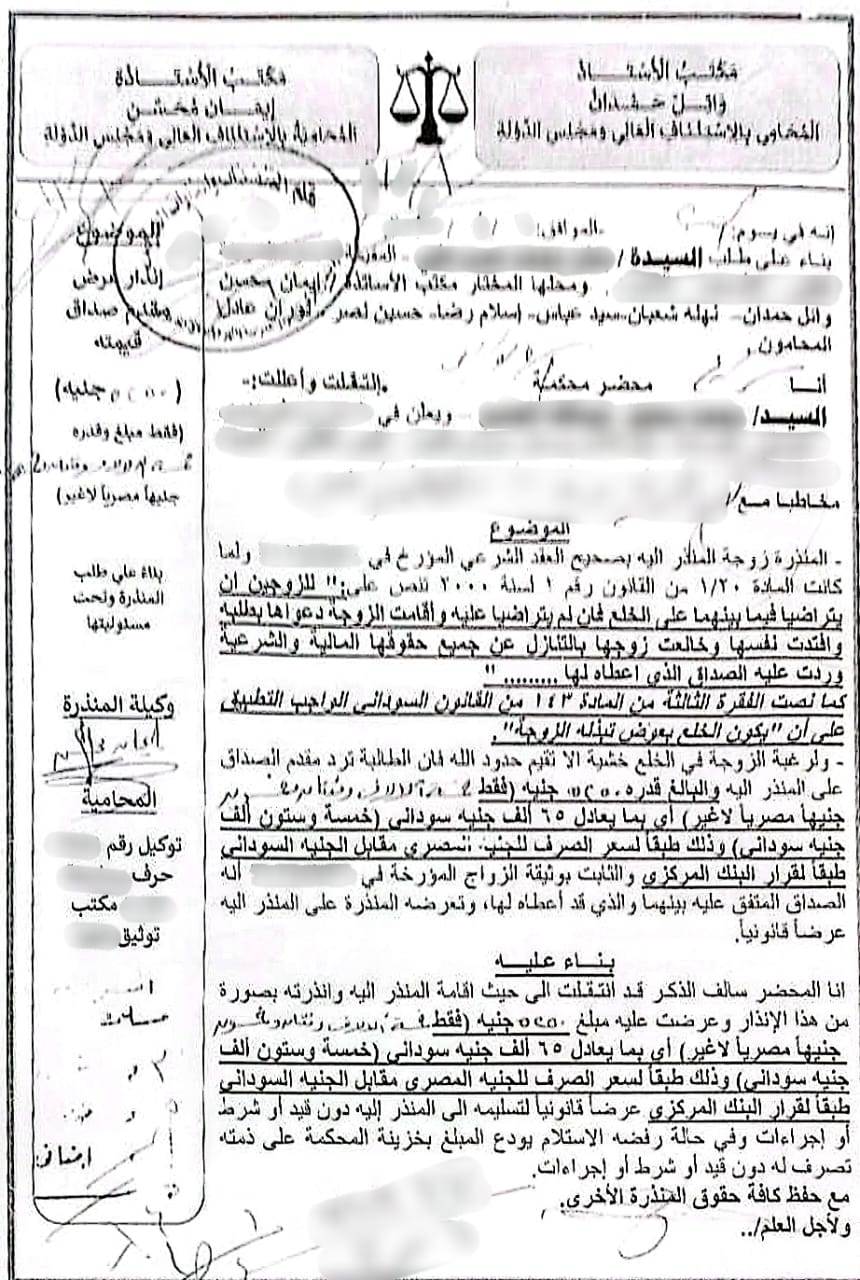 مكتب الأستاذ
وائل حمدان
المحامي بالاستئناف العالي ومجلس الدولة
مكتب الأستاذة
إيمان محسن
المحامية بالاستئناف العالي ومجلس الدولة
إنه في يوم: / الموافق: / /
بناء على طلب السيدة /
ومحلها المختار مكتب الأساتذة / إيمان محسن
وائل حمدان – نهلة شعبان – سيد عباس – إسلام رضا – حسين نصر – نوران عادل
المحامون.
أنا محضر محكمة انتقلت وأعلنت:-
السيد/ ويعلن في
مخاطبا مع/
الموضوع
- المنذرة زوجة المنذر اليه بصحيح العقد الشرعي المؤرخ في ولما
كانت المادة ١/٢٠ من القانون رقم ١ لسنة ٢٠٠٠ تنص على:" للزوجين ان
يتراضيا فيما بينهما على الخلع فان لم يتراضيا عليه وأقامت الزوجة دعواها بطلبه
وافتدت نفسها وخالعت زوجها بالتنازل عن جميع حقوقها المالية والشرعية
وردت عليه الصداق الذي اعطاه لها ......... "
كما نصت الفقرة الثالثة من المادة ١٤٣ من القانون السوداني الواجب التطبيق
على أن "يكون الخلع بعوض تبذله الزوجة".
- ولرغبة الزوجة في الخلع خشية الا تقيم حدود الله فان الطالبة ترد مقدم الصداق
على المنذر اليه والبالغ قدره جنيه (فقط
جنيهاً مصرياً لاغير) أي بما يعادل ٦٥ ألف جنيه سوداني (خمسة وستون ألف
جنيه سوداني) وذلك طبقاً لسعر الصرف للجنيه المصري مقابل الجنيه السوداني
طبقاً لقرار البنك المركزي والثابت بوثيقة الزواج المؤرخة في انه
الصداق المتفق عليه بينهما والذي قد أعطاه لها، وتعرضه المنذرة على المنذر اليه
عرضاً قانونياً.
بناء عليه
انا المحضر سالف الذكر قد انتقلت الى حيث اقامة المنذر اليه وانذرته بصورة
من هذا الإنذار وعرضت عليه مبلغ جنيه (فقط
جنيهاً مصرياً لاغير) أي بما يعادل ٦٥ ألف جنيه سوداني (خمسة وستون ألف
جنيه سوداني) وذلك طبقاً لسعر الصرف للجنيه المصري مقابل الجنيه السوداني
طبقاً لقرار البنك المركزي عرضاً قانونياً لتسليمه الى المنذر إليه دون قيد أو شرط
أو إجراءات وفي حالة رفضه الاستلام يودع المبلغ بخزينة المحكمة على ذمته
تصرف له دون قيد أو شرط أو إجراءات.
مع حفظ كافة حقوق المنذرة الأخرى.
ولأجل العلم/..
الموضوع
إنذار عرض
مقدم صداق
قيمته
جنيه)
(فقط مبلغ وقدره
جنيهاً مصرياً لاغير)
بناء علي طلب
المنذرة وتحت
مسئوليتها
وكيلة المنذرة
المحامية
توكيل رقم
حرف
مكتب
توثيق